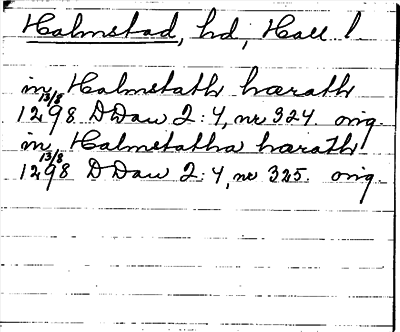 Halmstad, hd, Hall l.
in Halmstath hærath
13/8
1298 DDan 2:4, nr 324 orig.
in Halmstatha hærath
13/8
1298 DDan 2:4, nr 325. orig.